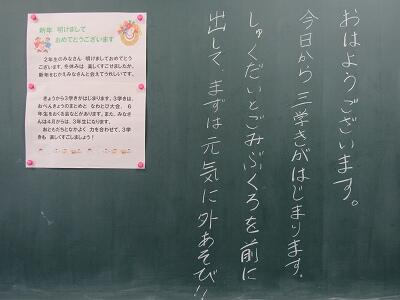 おはようございます。
今日から三学きがはじまります。
しゅくだいとごみぶくろを前に
出して、まずは元気に外あそび!!
新年 明けまして
おめでとうございます
2年生のみなさん 明けましておめでとう
ございます。冬休みは 楽しくすごせましたか。
新年をむかえみなさんと会えてうれしいです。
きょうから3学きがはじまります。3学きは、
おべんきょうのまとめと なわとび大会、6
年生をおくる会などがあります。また、みなさ
んは4月からは、3年生になります。
おともだちとなかよく 力を合わせて、3学
きも 楽しくすごしましょう！